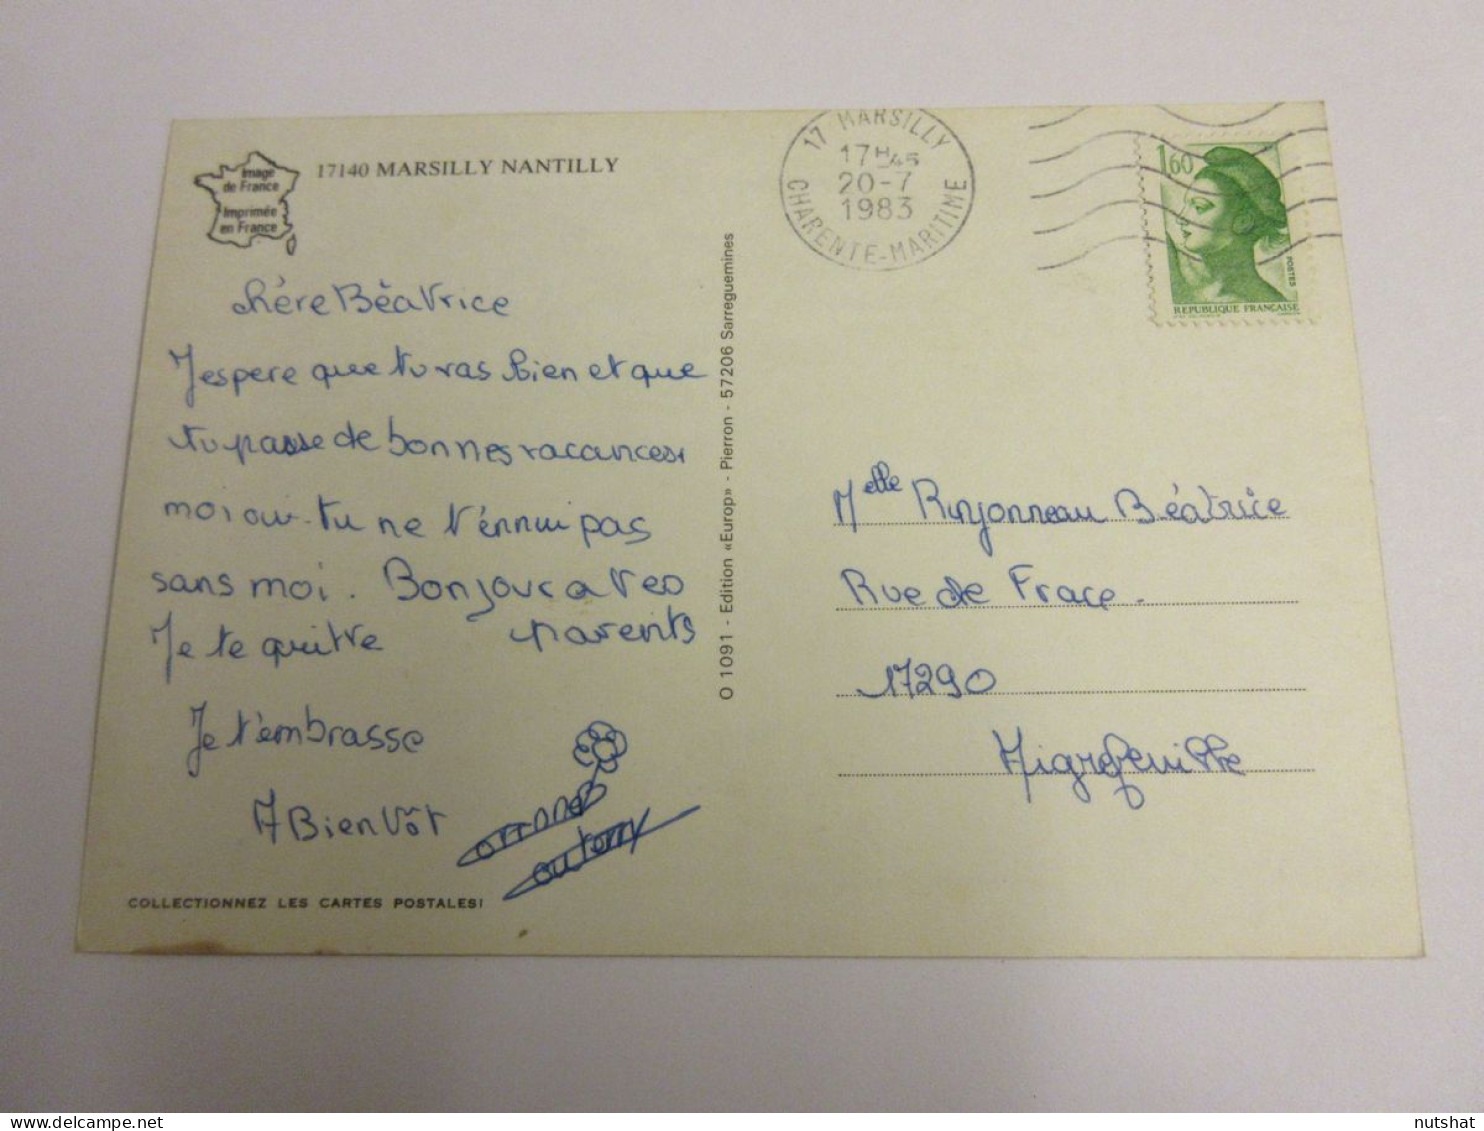 Image
de France
Imprimée
en France
17140 MARSILLY NANTILLY
17 MARSILLY
17H45
20-7
1983
CHARENTE-MARITIME
1,60
POSTES
REPUBLIQUE FRANÇAISE
chére Béatrice
J'espere que tu vas bien et que
tu passe de bonnes vacances.
moi oui. tu ne t'énnui pas
sans moi. Bonjour a tes
parents
Je te quitte
Je t'embrasse
A Bientôt
COLLECTIONNEZ LES CARTES POSTALES!
O 1091 - Edition «Europ» - Pierron - 57206 Sarreguemines
Melle Béatrice
Rue de Frace.
17290
Aigrefeuille
nutshat